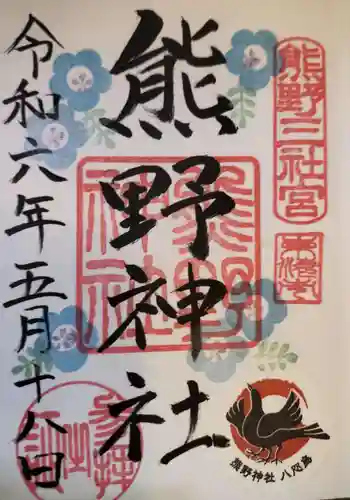 熊野三社宮
熊野神社
熊野神社
令和六年五月十八日
参拝
熊野神社 八咫烏